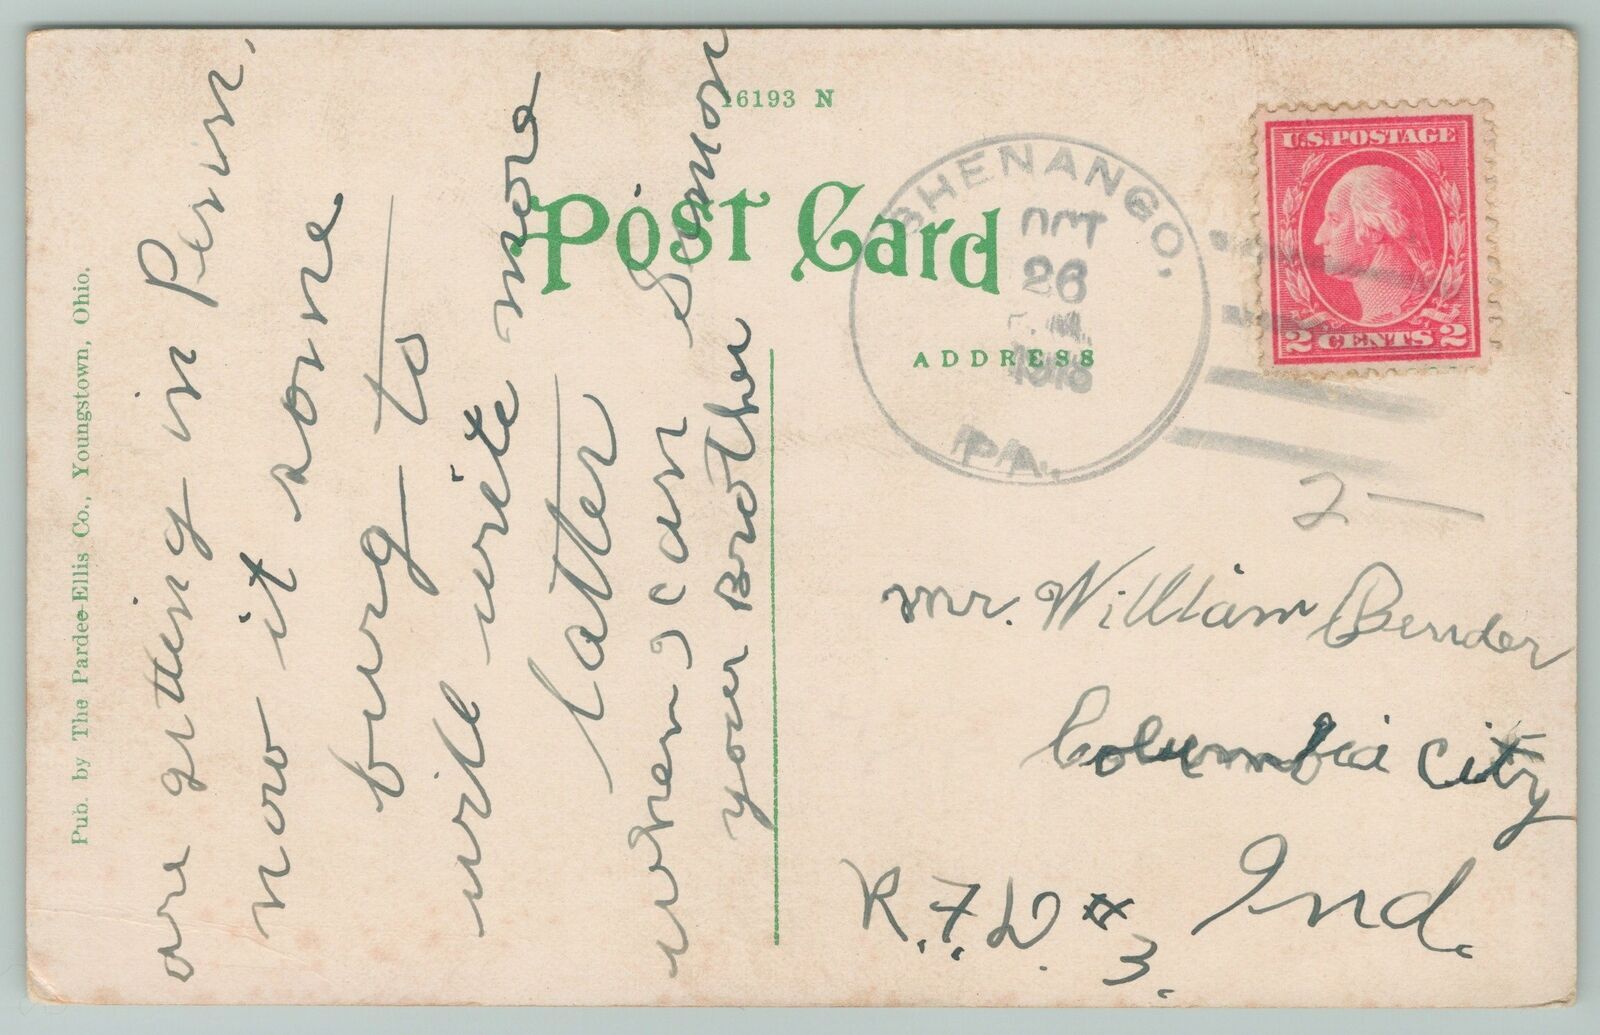 16193 N
Post Card
ADDRESS
SHENANGO,
OCT
26
1918
PA.
U.S. POSTAGE
2 CENTS 2
2—
Mr. William Bender
Columbia City
Ind.
R.F.D #
3.
are getting in Penn.
now it sone
burg to
will write more
latter
when I can Simon
your Brother
Pub. by The Pardee-Ellis Co., Youngstown, Ohio.